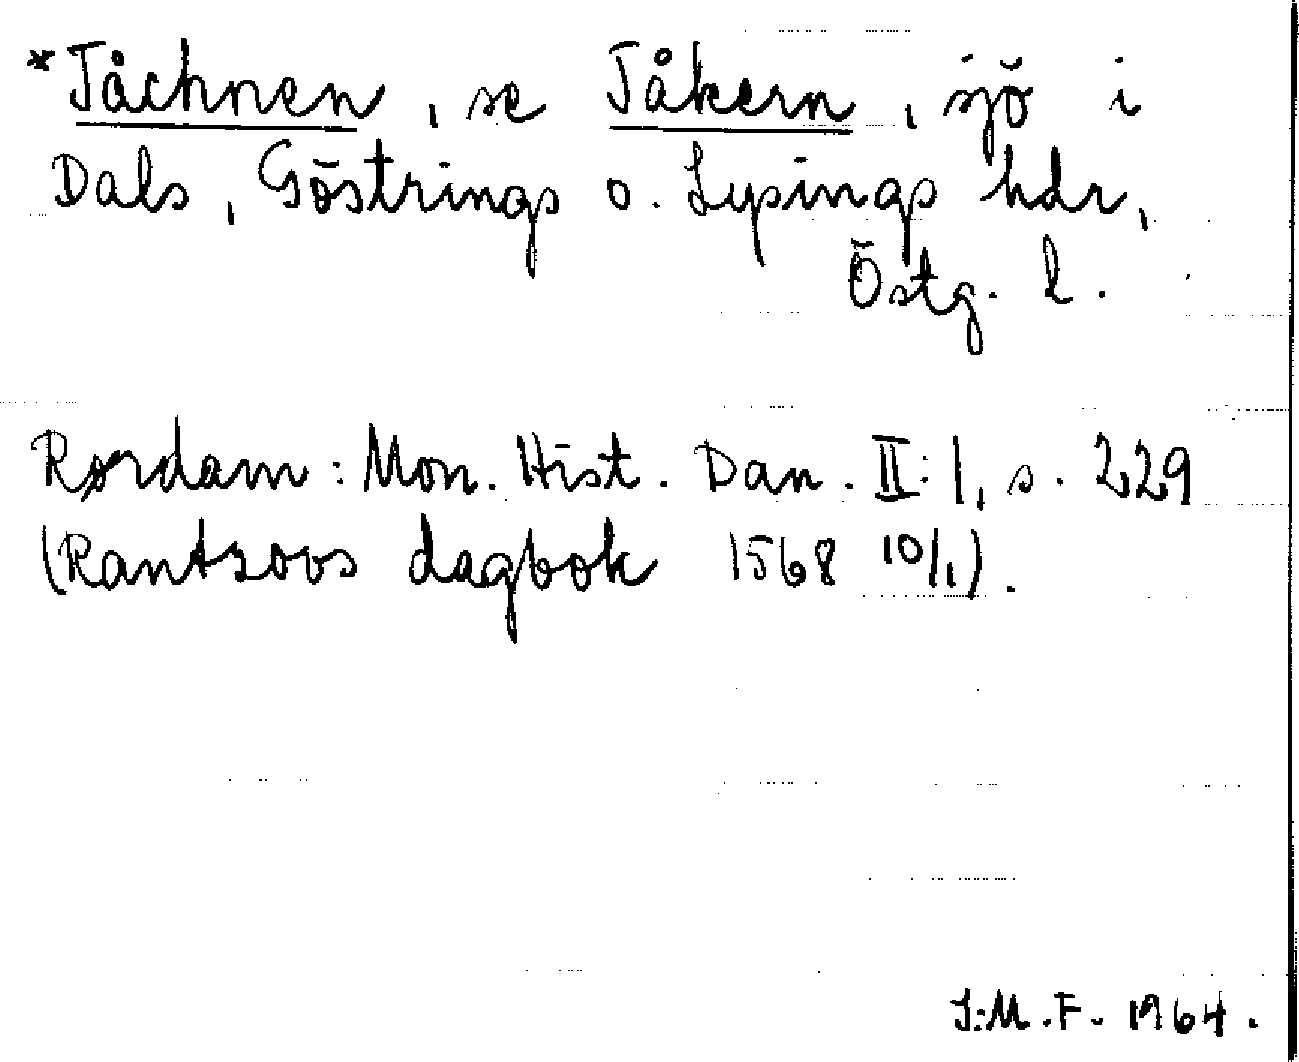 *Tåchnen, se Tåkern, sjö i
Dals, Göstrings o. Lysings hdr,
Östg. l.
Rørdam: Mon. Hist. Dan. II:1, s. 229
(Rantzovs dagbok 1568 10/1).
I.M.F. 1964.